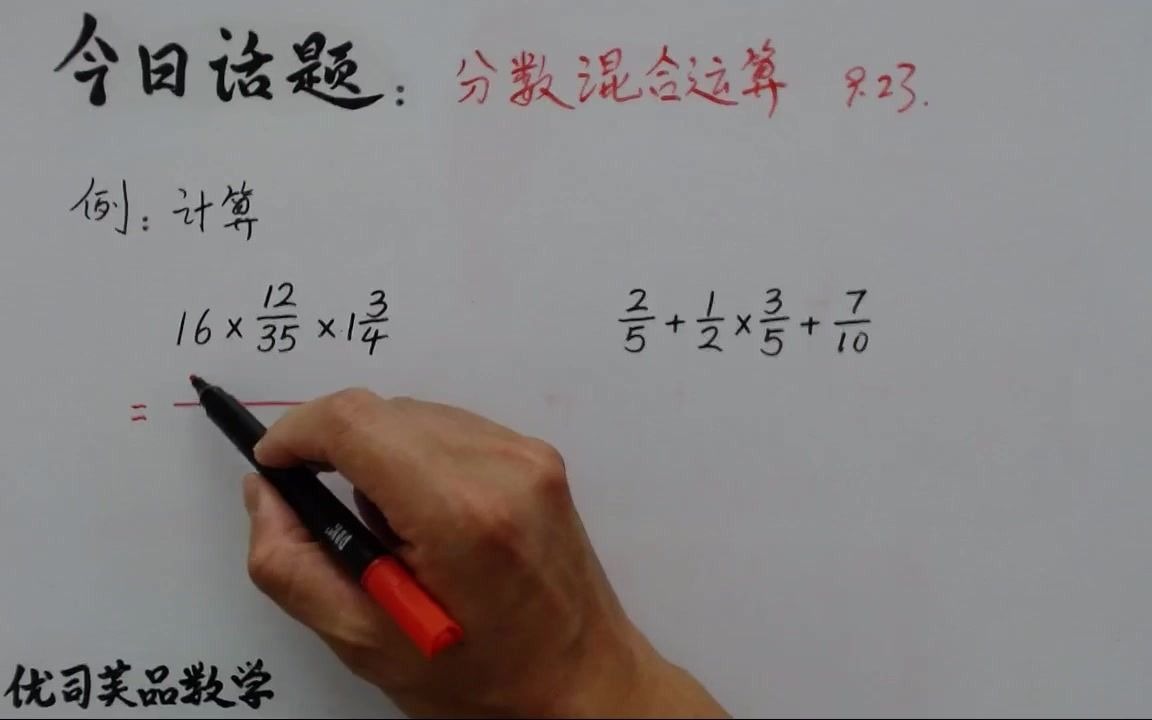 今日话题：分数混合运算 9.23.
例：计算
16 × 12/35 × 1 3/4
2/5 + 1/2 × 3/5 + 7/10
=
优司芙品数学